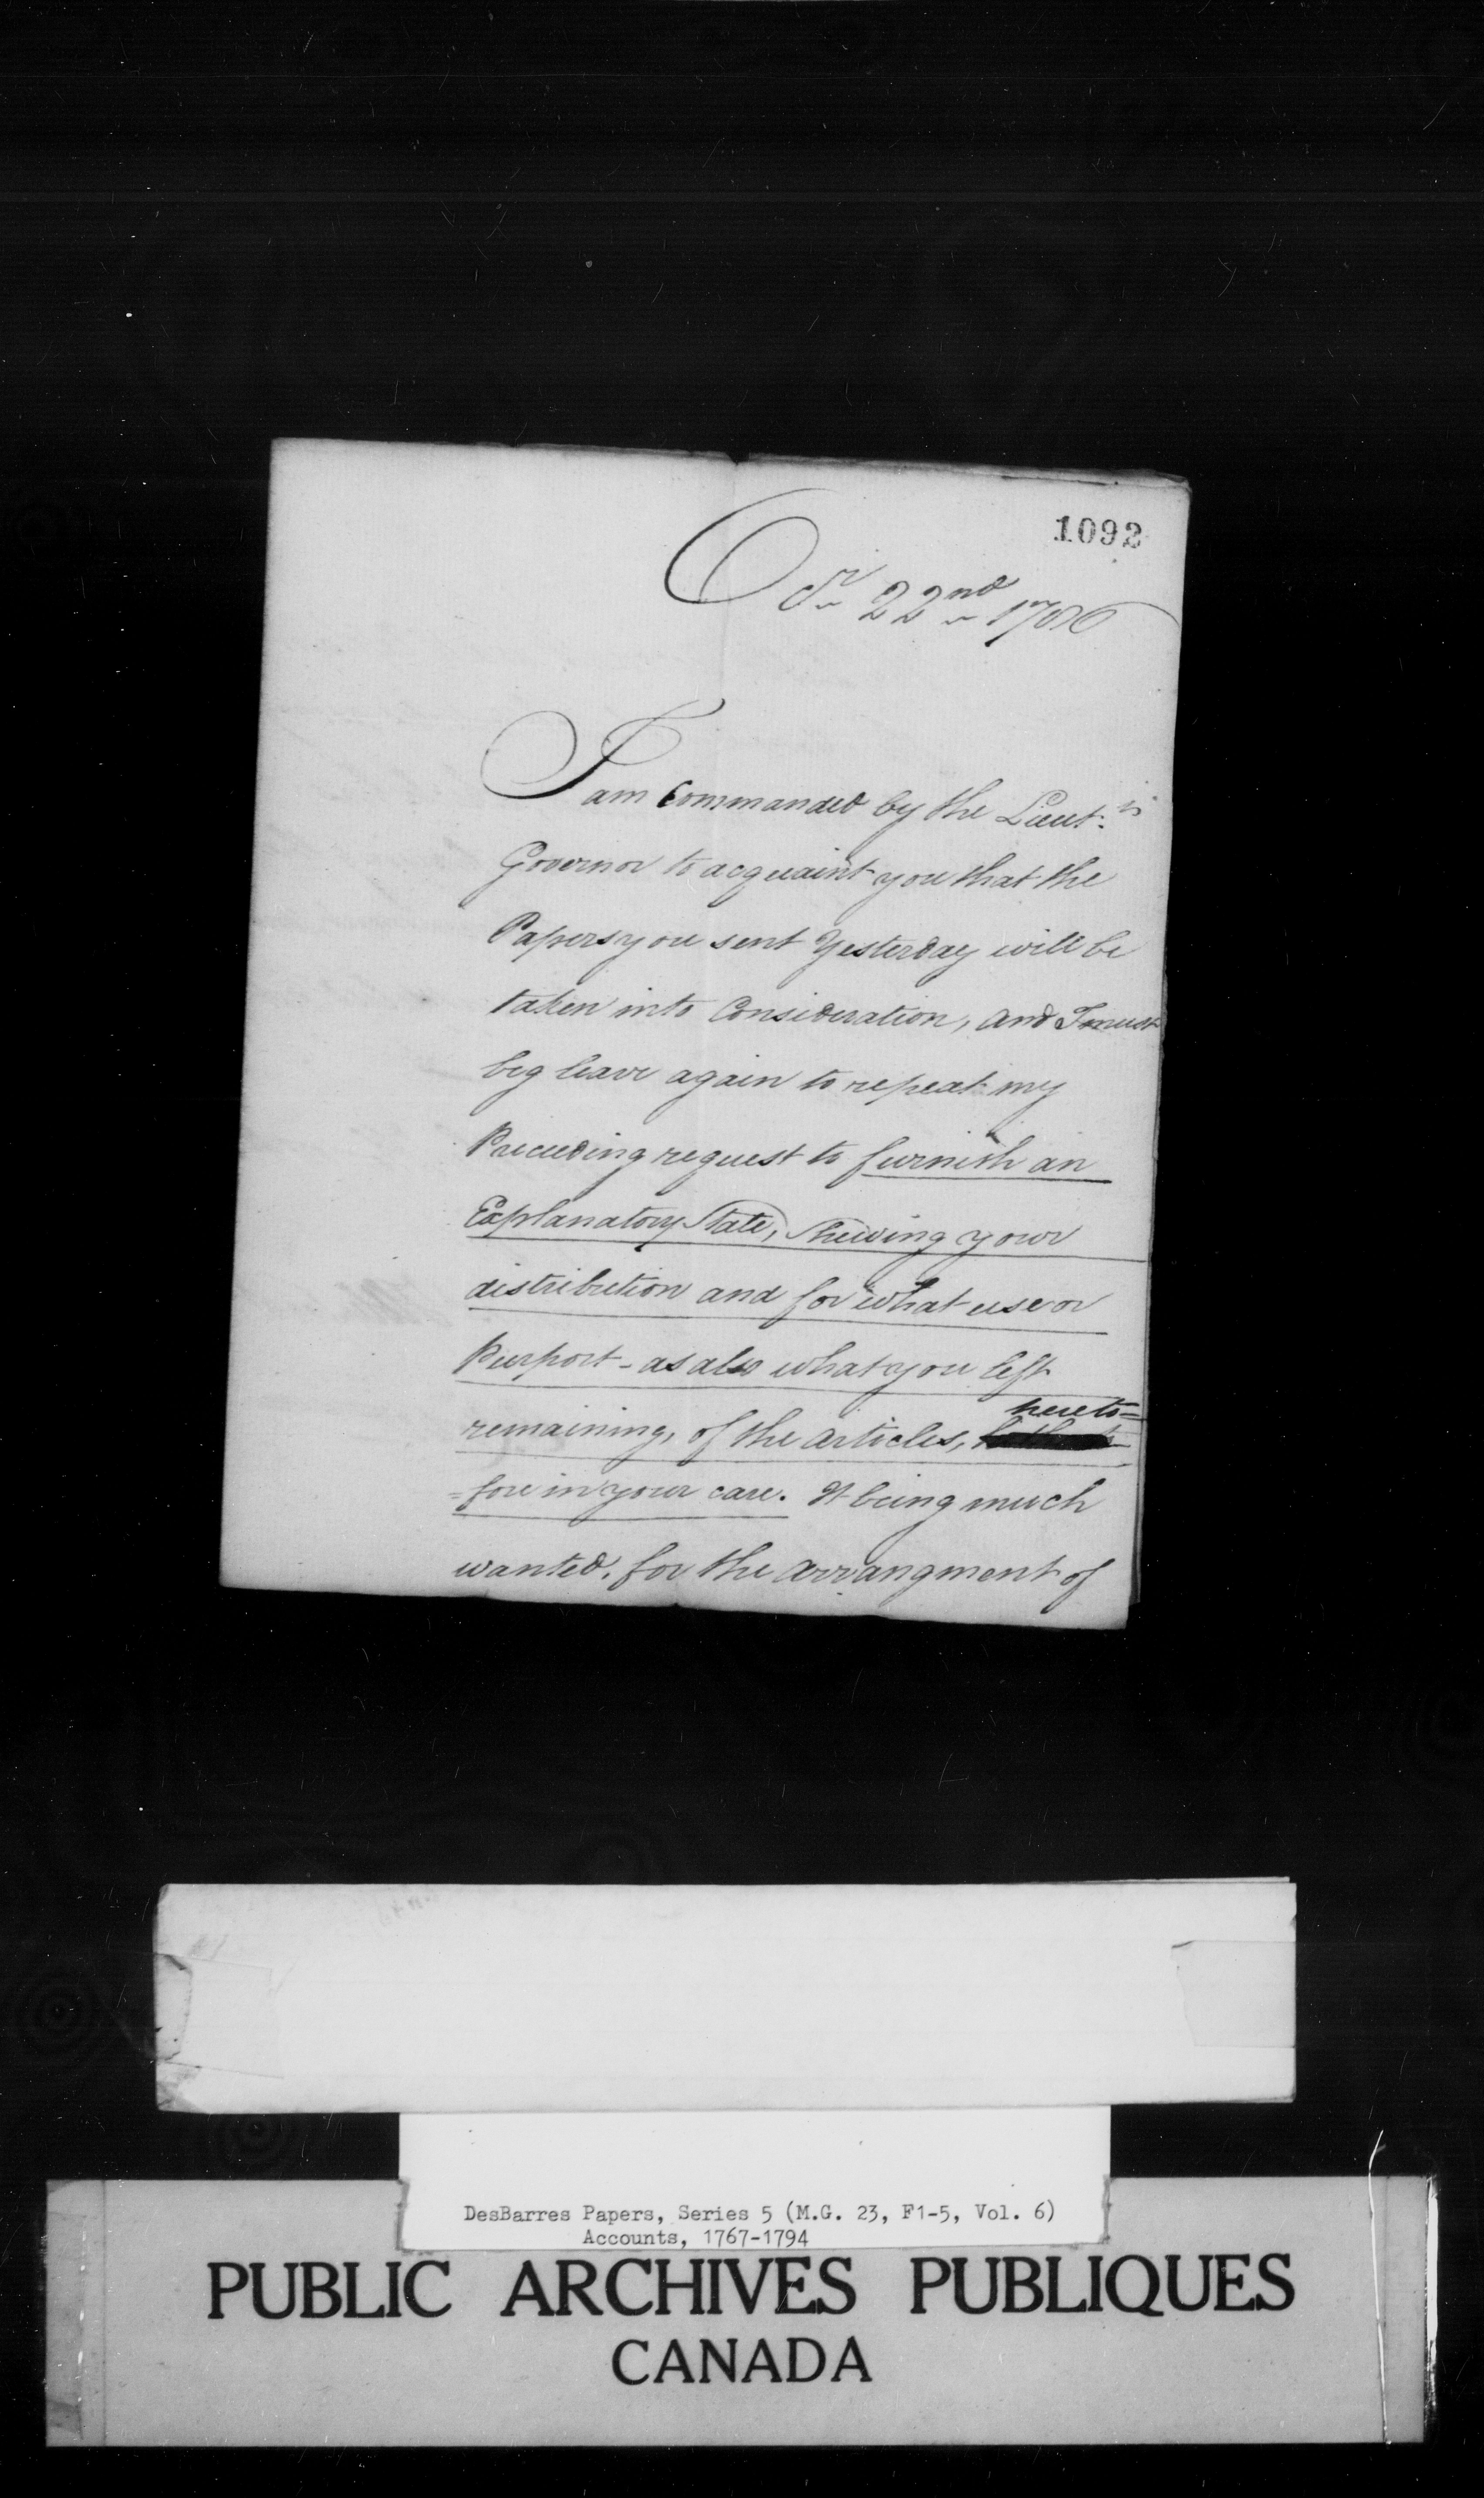 1092
Octr 22nd 1786
I am Commanded by the Lieut:
Governor to acquaint you that the
Papers you sent Yesterday will be
taken into Consideration, and I must
beg leave again to repeat my
Preceeding request to furnish an
Explanatory State, Shewing your
distribution and for what use or
Purport - as also what you left
hereto=
remaining, of the articles,
=fore in your care. It being much
wanted, for the arrangment of
DesBarres Papers, Series 5 (M.G. 23, F1-5, Vol. 6)
Accounts, 1767-1794
PUBLIC ARCHIVES PUBLIQUES
CANADA